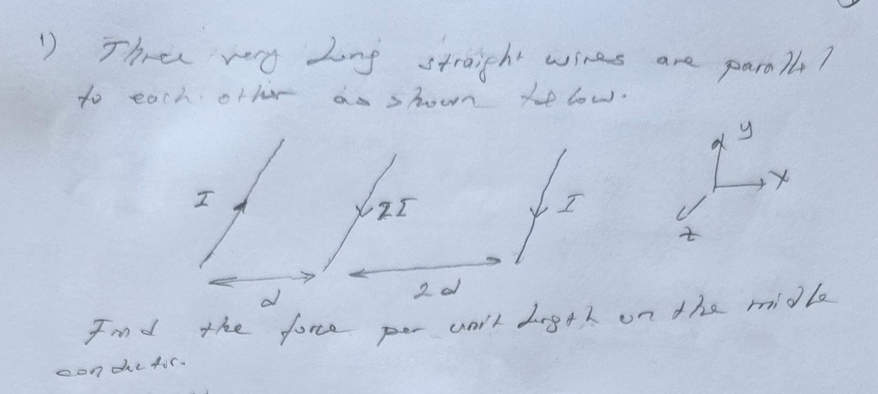 1) Three very long straight wires are parallel
to each other as shown below.
y
x
z
I
2I
I
d
2d
Find the force per unit length on the midle
conductor.